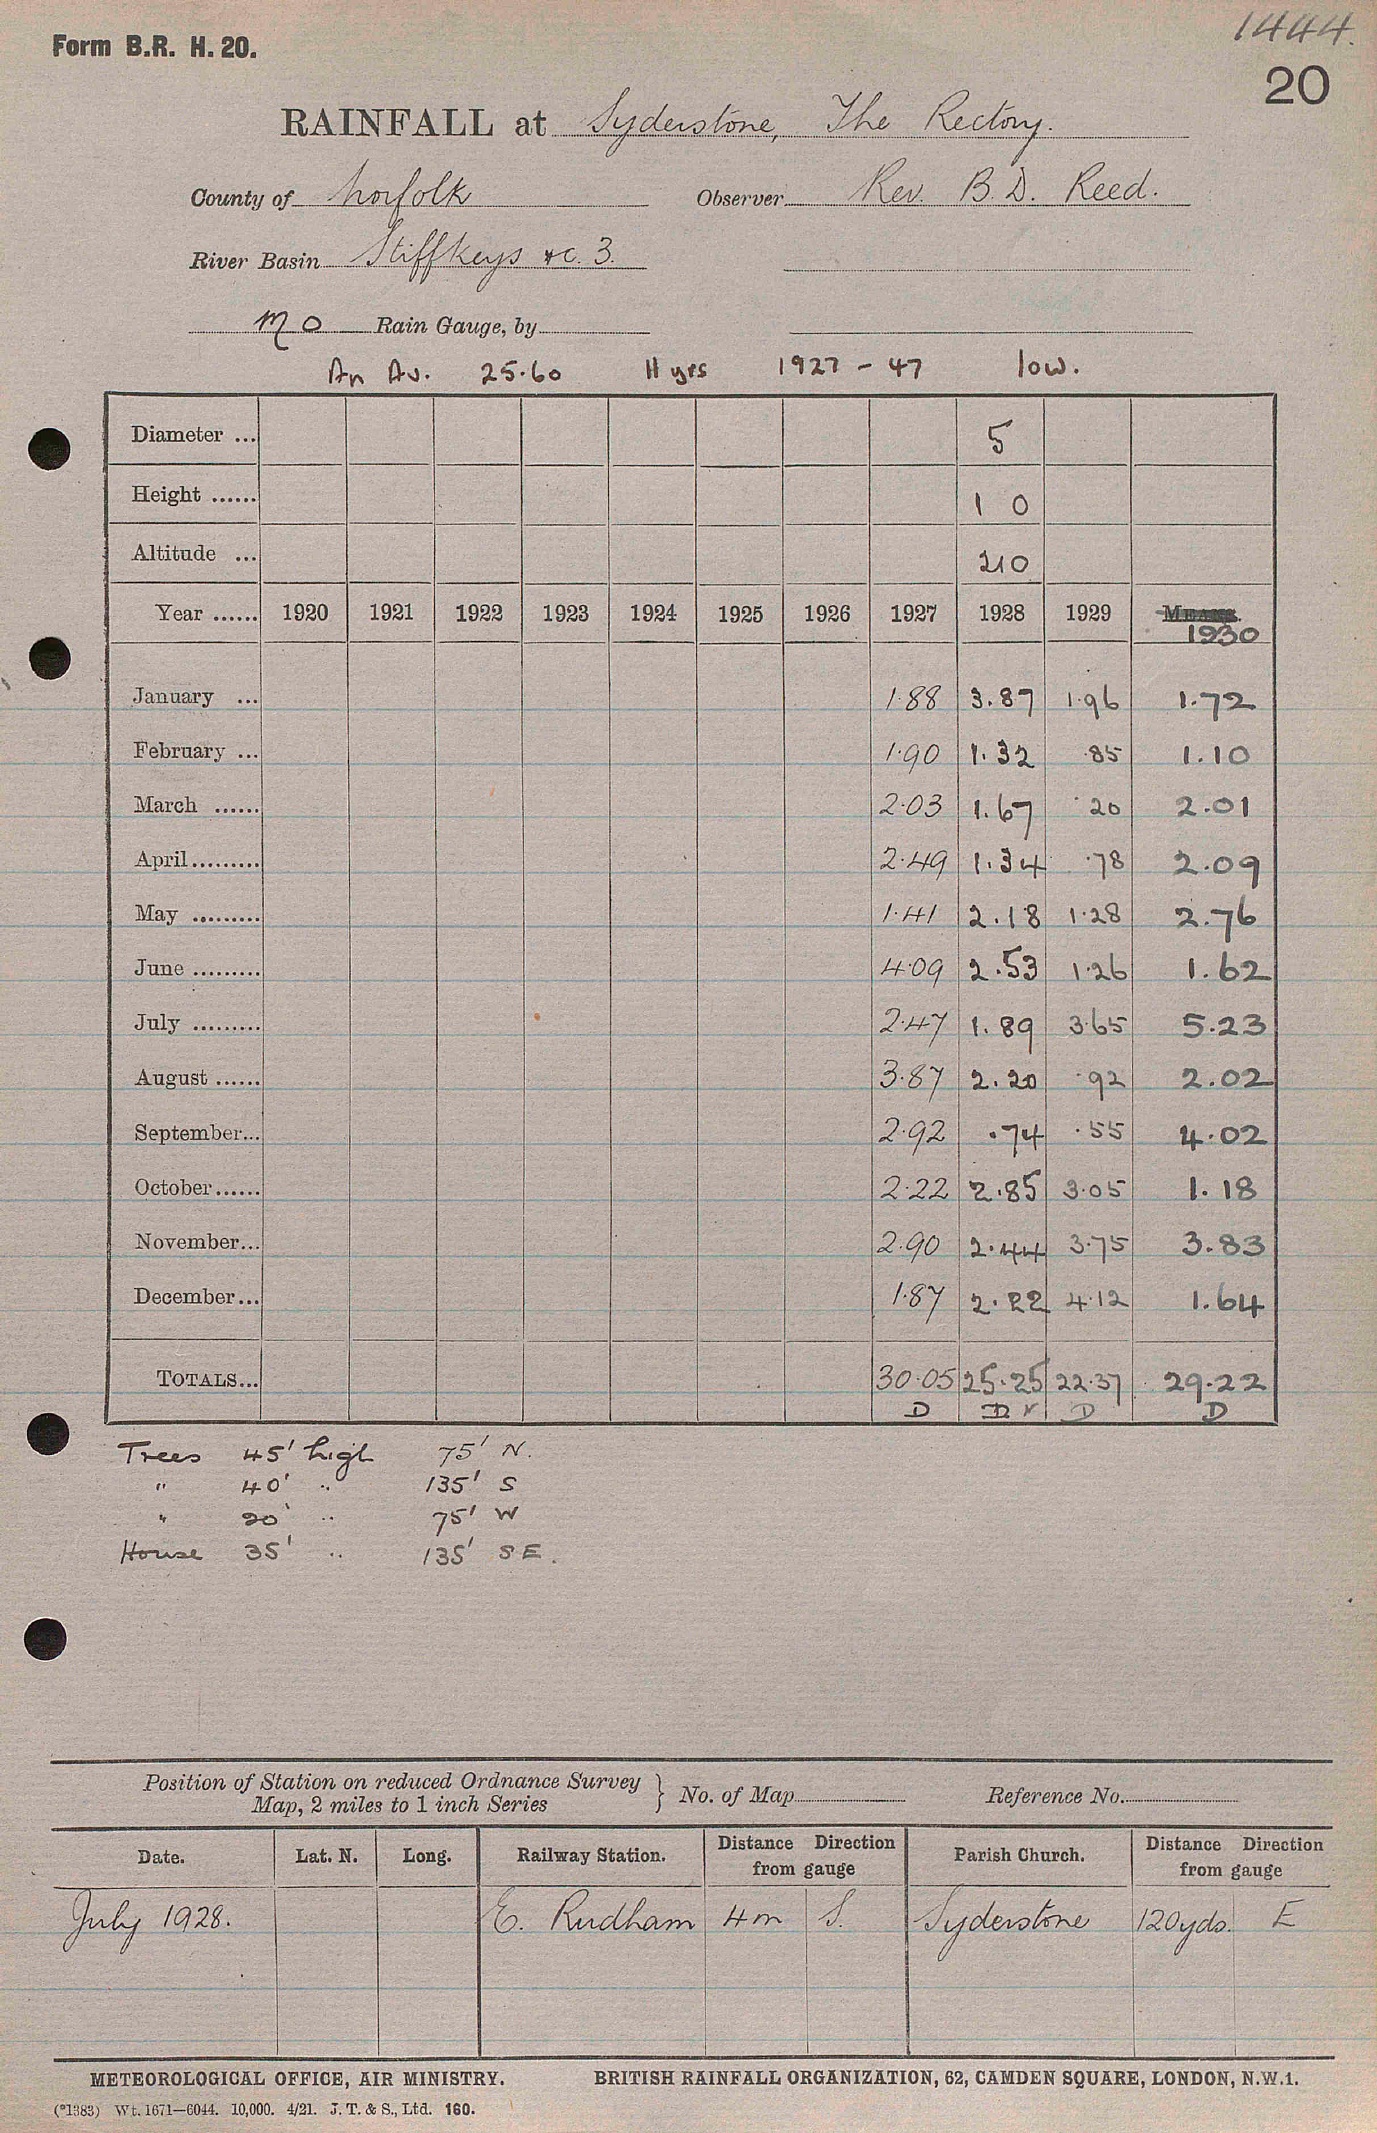 1444.
Form B.R. H. 20.
20
RAINFALL at Syderstone, The Rectory.
County of Norfolk Observer Rev. B. D. Reed.
River Basin Stiffkeys &c. 3.
M O Rain Gauge, by
An Av. 25.60 11 yrs 1927 - 47 low.
Diameter ... 5
Height ...... 1 0
Altitude ... 210
Year ...... 1920 1921 1922 1923 1924 1925 1926 1927 1928 1929 MEANS.
1930
January ... 1.88 3.87 1.96 1.72
February ... 1.90 1.32 .85 1.10
March ...... 2.03 1.67 .20 2.01
April......... 2.49 1.34 .78 2.09
May ......... 1.41 2.18 1.28 2.76
June ......... 4.09 2.53 1.26 1.62
July ......... 2.47 1.89 3.65 5.23
August ...... 3.87 2.20 .92 2.02
September... 2.92 .74 .55 4.02
October...... 2.22 2.85 3.05 1.18
November... 2.90 2.44 3.75 3.83
December... 1.87 2.22 4.12 1.64
TOTALS... 30.05 25.25 22.37 29.22
D D D D
Trees 45' high 75' N.
" 40' " 135' S
" 20' " 75' W
House 35' " 135' S E.
Position of Station on reduced Ordnance Survey
Map, 2 miles to 1 inch Series } No. of Map Reference No.
Date. Lat. N. Long. Railway Station. Distance Direction from gauge Parish Church. Distance Direction from gauge
July 1928. E. Rudham 4m S. Syderstone 120yds. E
METEOROLOGICAL OFFICE, AIR MINISTRY. BRITISH RAINFALL ORGANIZATION, 62, CAMDEN SQUARE, LONDON, N.W.1.
(*1383) Wt. 1671—6044. 10,000. 4/21. J. T. & S., Ltd. 160.